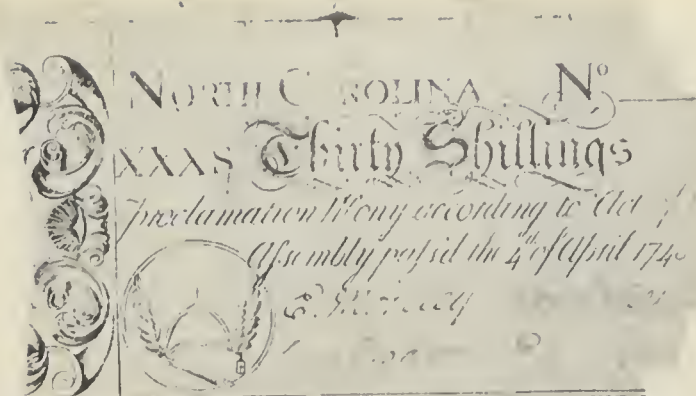 NORTH C ROLINA . No
XXXS Thirty Shillings
Proclamation Mony according to Act
Assembly passed the 4th of April 174